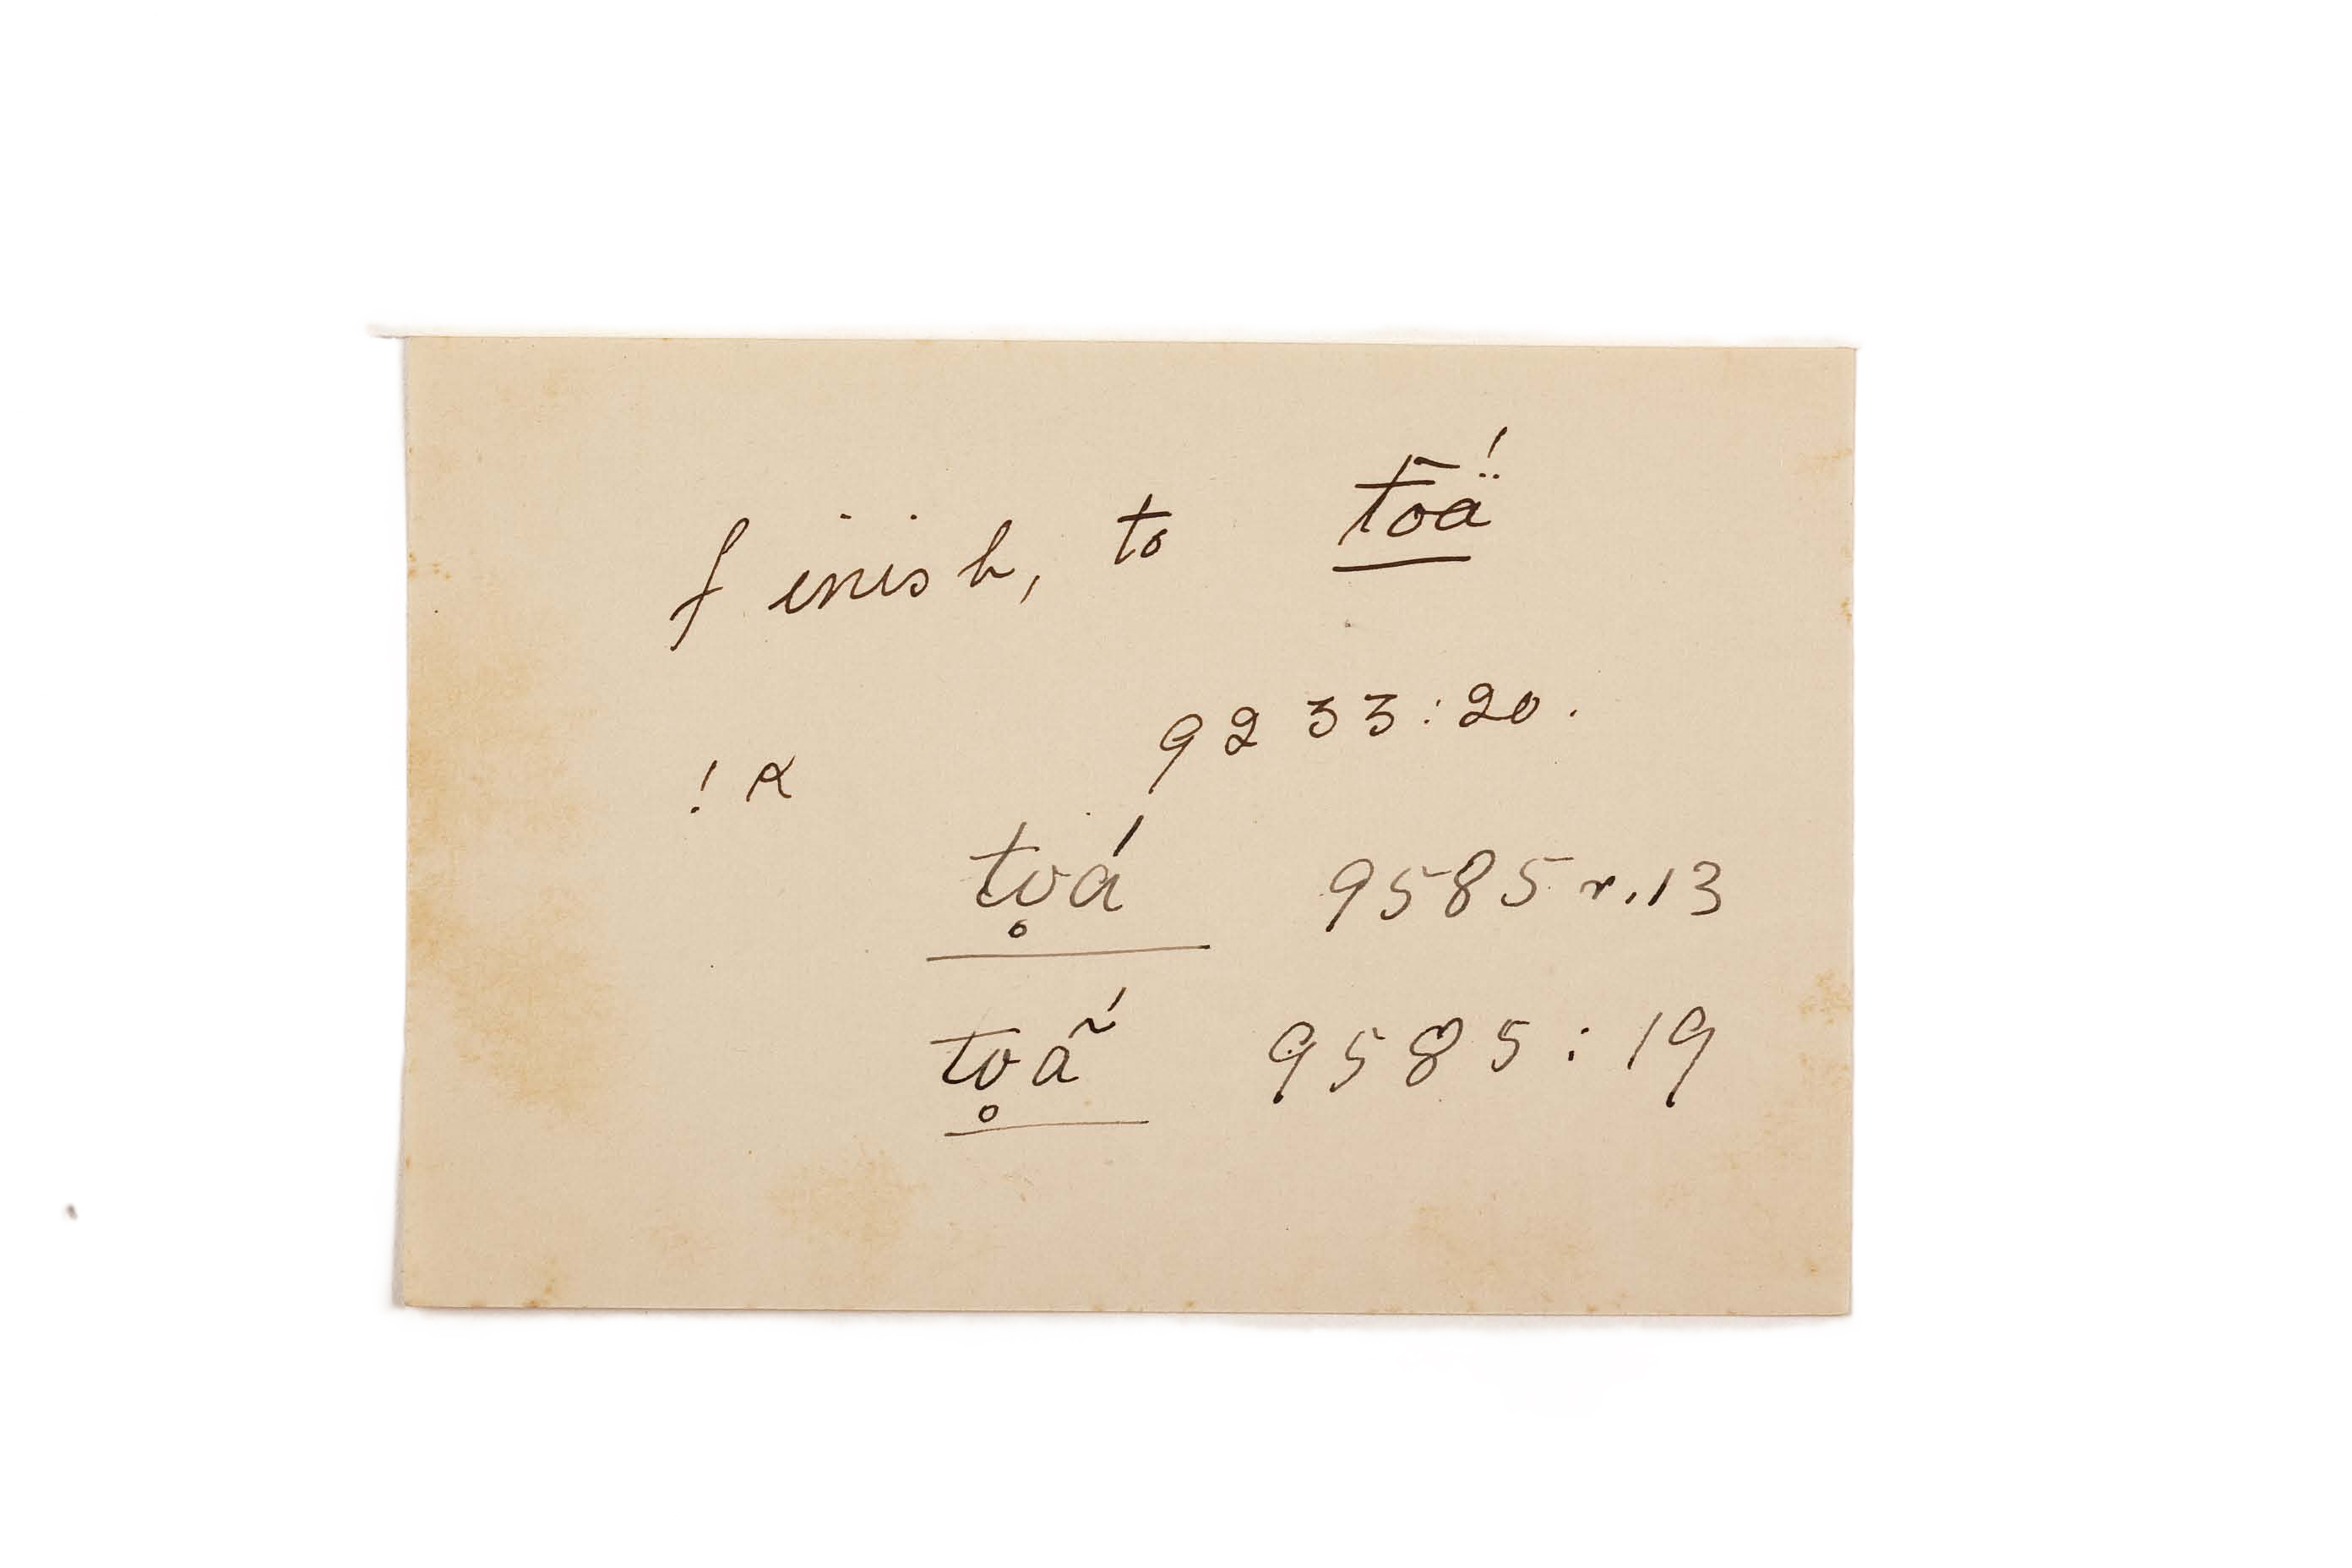 finish, to tōä́
9233:20.
! ʀ
to̥á 9585 r. 13
to̥ã́ 9585:19